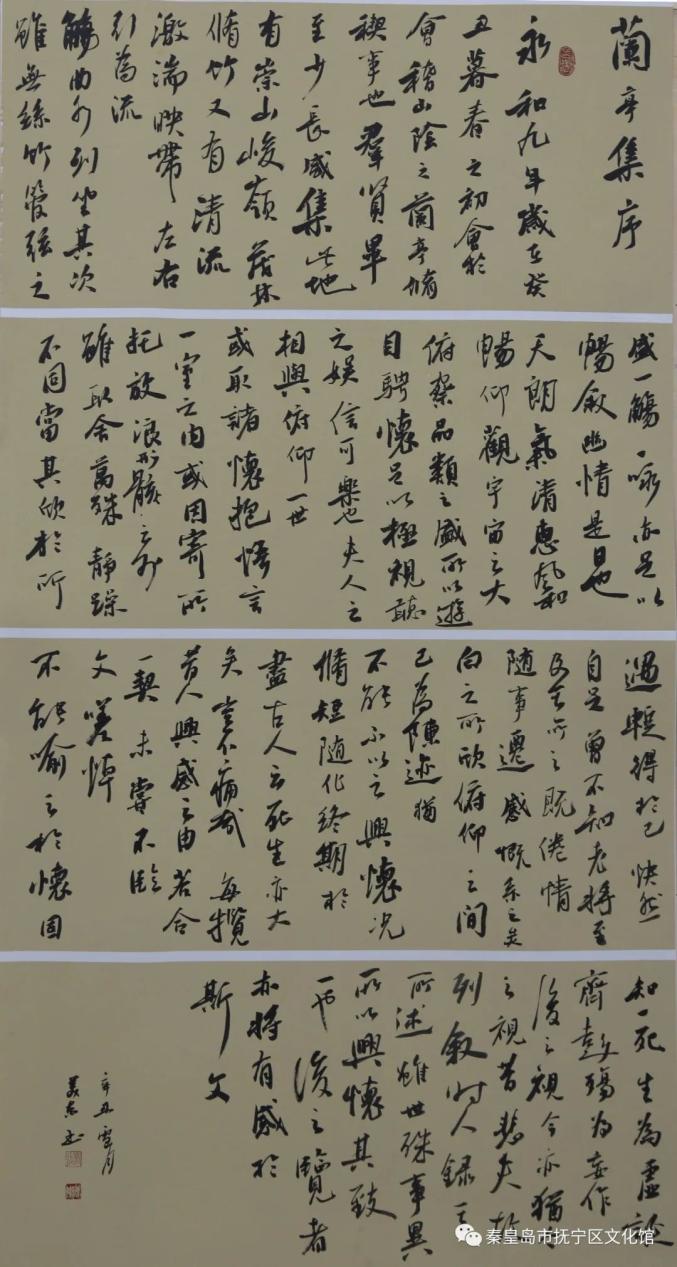 蘭亭集序
永和九年歲在癸
丑暮春之初會於
會稽山陰之蘭亭脩
禊事也羣賢畢
至少長咸集此地
有崇山峻嶺茂林
脩竹又有清流
激湍映帶左右
引為流
觴曲水列坐其次
雖無絲竹管弦之
盛一觴一詠亦足以
暢敘幽情是日也
天朗氣清惠風和
暢仰觀宇宙之大
俯察品類之盛所以遊
目騁懷足以極視聽
之娛信可樂也夫人之
相與俯仰一世
或取諸懷抱悟言
一室之內或因寄所
託放浪形骸之外
雖取舍萬殊靜躁
不同當其欣於所
遇輒得於己快然
自足曾不知老將至
及其所之既倦情
隨事遷感慨系之矣
向之所欣俯仰之間
已為陳迹猶
不能不以之興懷況
脩短隨化終期於
盡古人云死生亦大
矣豈不痛哉每攬
昔人興感之由若合
一契未嘗不臨
文嗟悼
不能喻之於懷固
知一死生為虛誕
齊彭殤為妄作
後之視今亦猶今
之視昔悲夫故
列敘時人錄其
所述雖世殊事異
所以興懷其致
一也後之覽者
亦將有感於
斯文
辛丑
秦皇岛市抚宁区文化馆